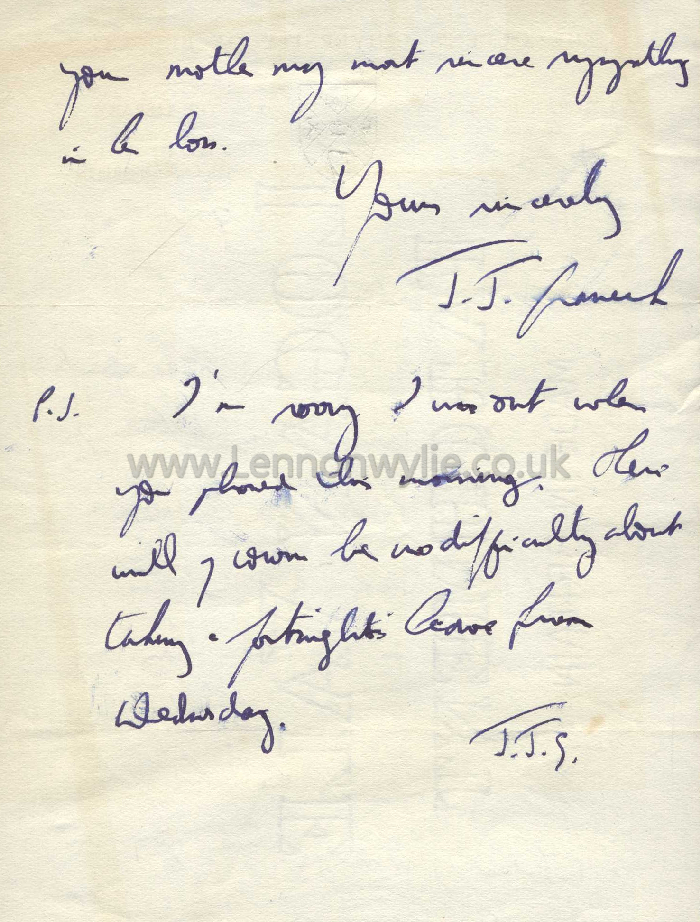 your mother my most sincere sympathy
in her loss.
Yours sincerely
J.J.
P.S. I'm sorry I was out when
www.Lennonwylie.co.uk
you phoned this morning. There
will of course be no difficulty about
taking a fortnight's leave from
Wednesday.
J.J.G.